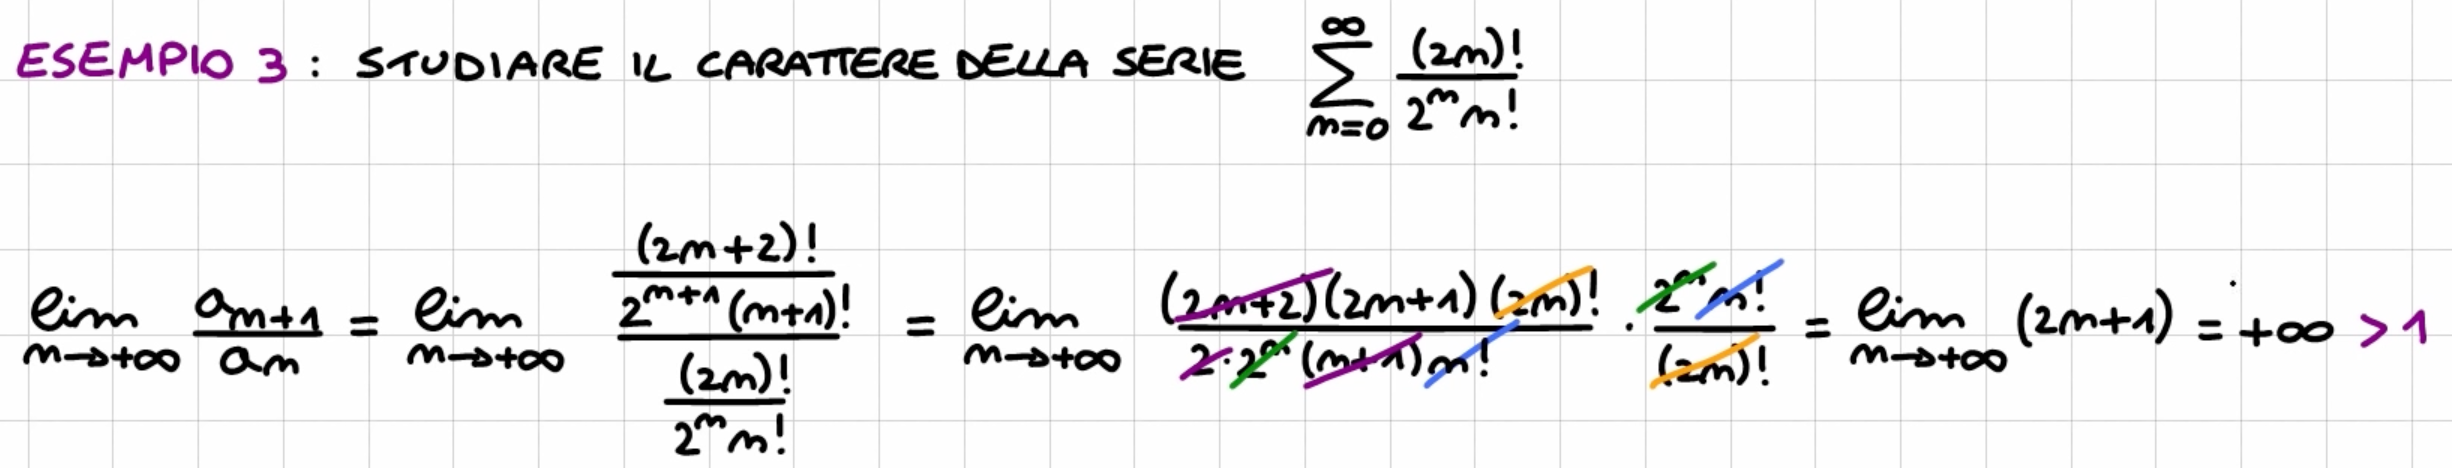 ESEMPIO 3 : STUDIARE IL CARATTERE DELLA SERIE \sum_{n=0}^{\infty} \frac{(2n)!}{2^n n!}
\lim_{n \to +\infty} \frac{a_{n+1}}{a_n} = \lim_{n \to +\infty} \frac{\frac{(2n+2)!}{2^{n+1}(n+1)!}}{\frac{(2n)!}{2^n n!}} = \lim_{n \to +\infty} \frac{(2n+2)(2n+1)(2n)!}{2 \cdot 2^n (n+1) n!} \cdot \frac{2^n n!}{(2n)!} = \lim_{n \to +\infty} (2n+1) = +\infty > 1